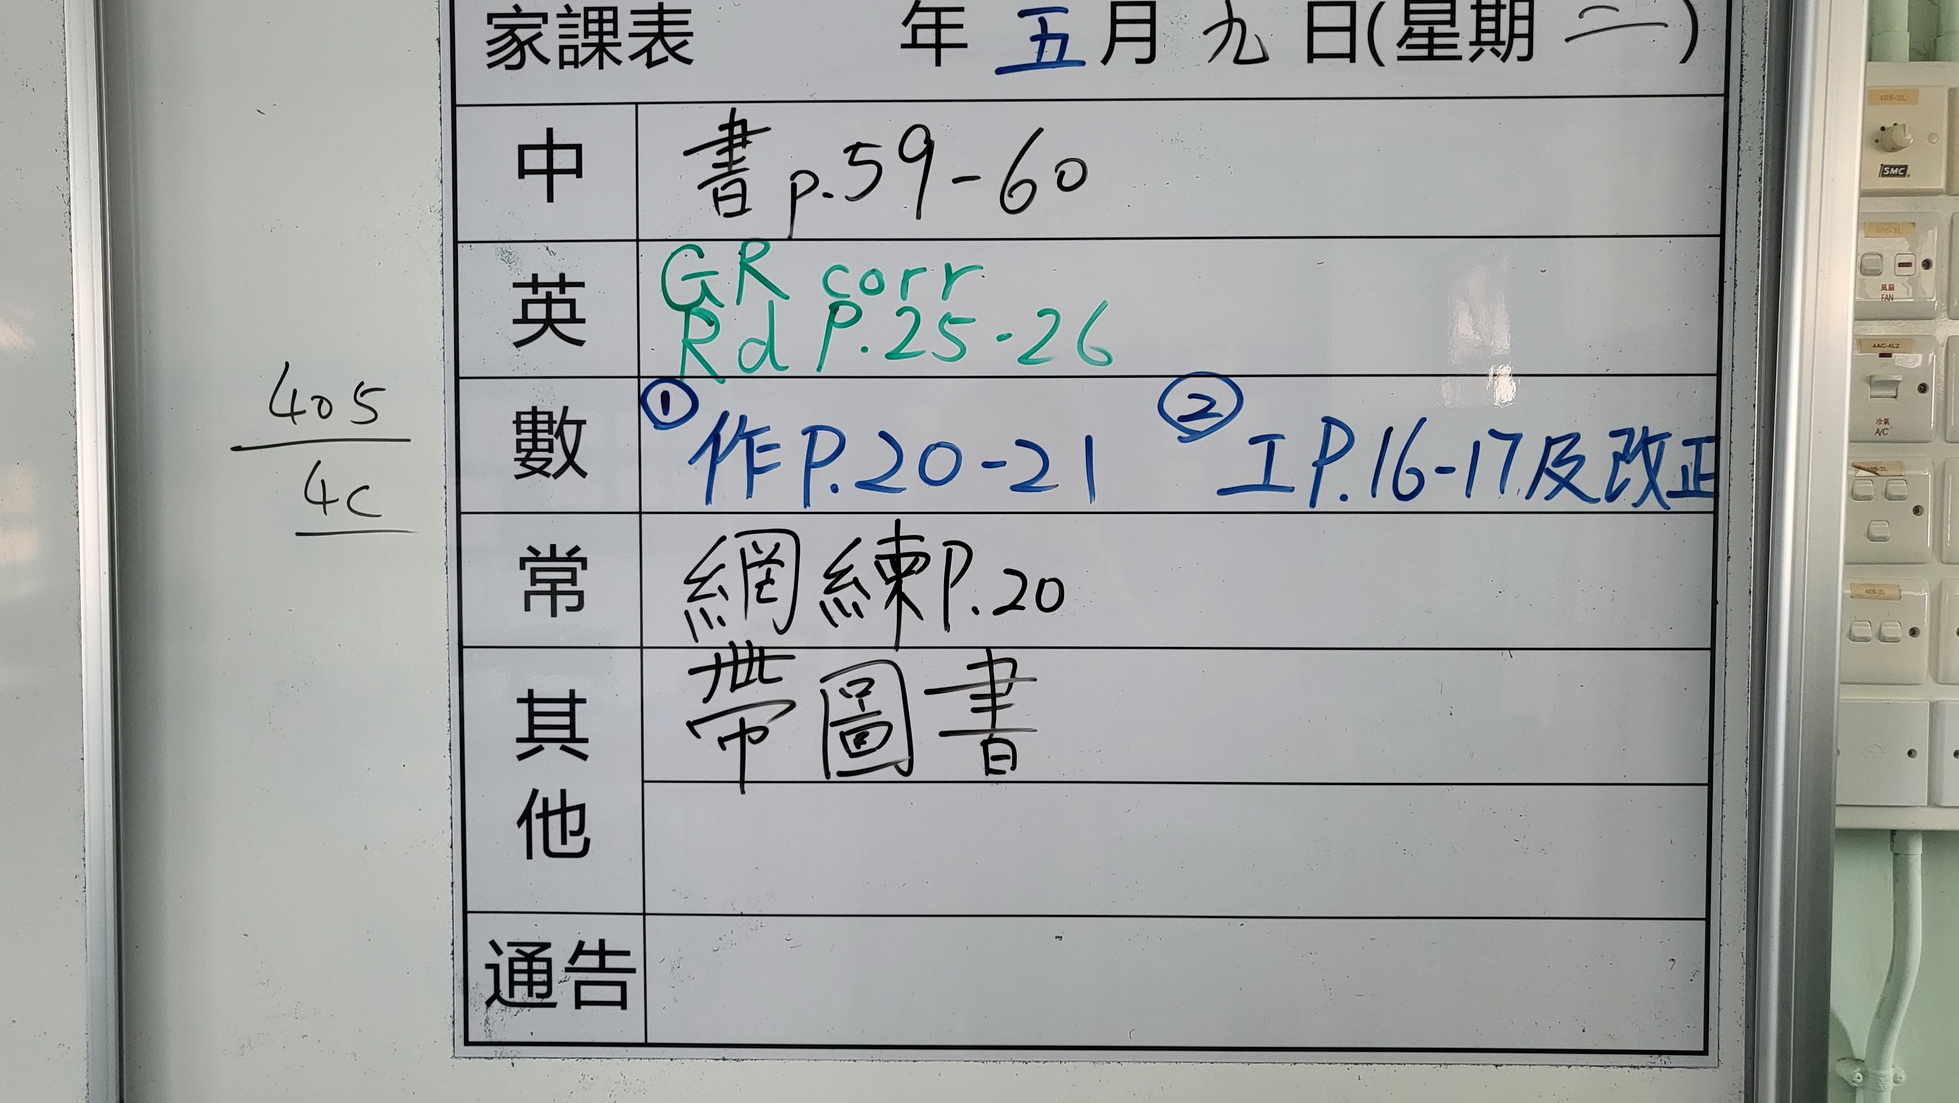 家課表 年 五 月 九 日(星期 二)
中 書 p.59-60
英 GR corr
Rd P.25-26
數 ① 作P.20-21 ② 工P.16-17及改正
常 網練P.20
其他 帶圖書
通告
405
4C
SMC
風扇
FAN
4AC-4L2
冷氣
A/C
405-2L